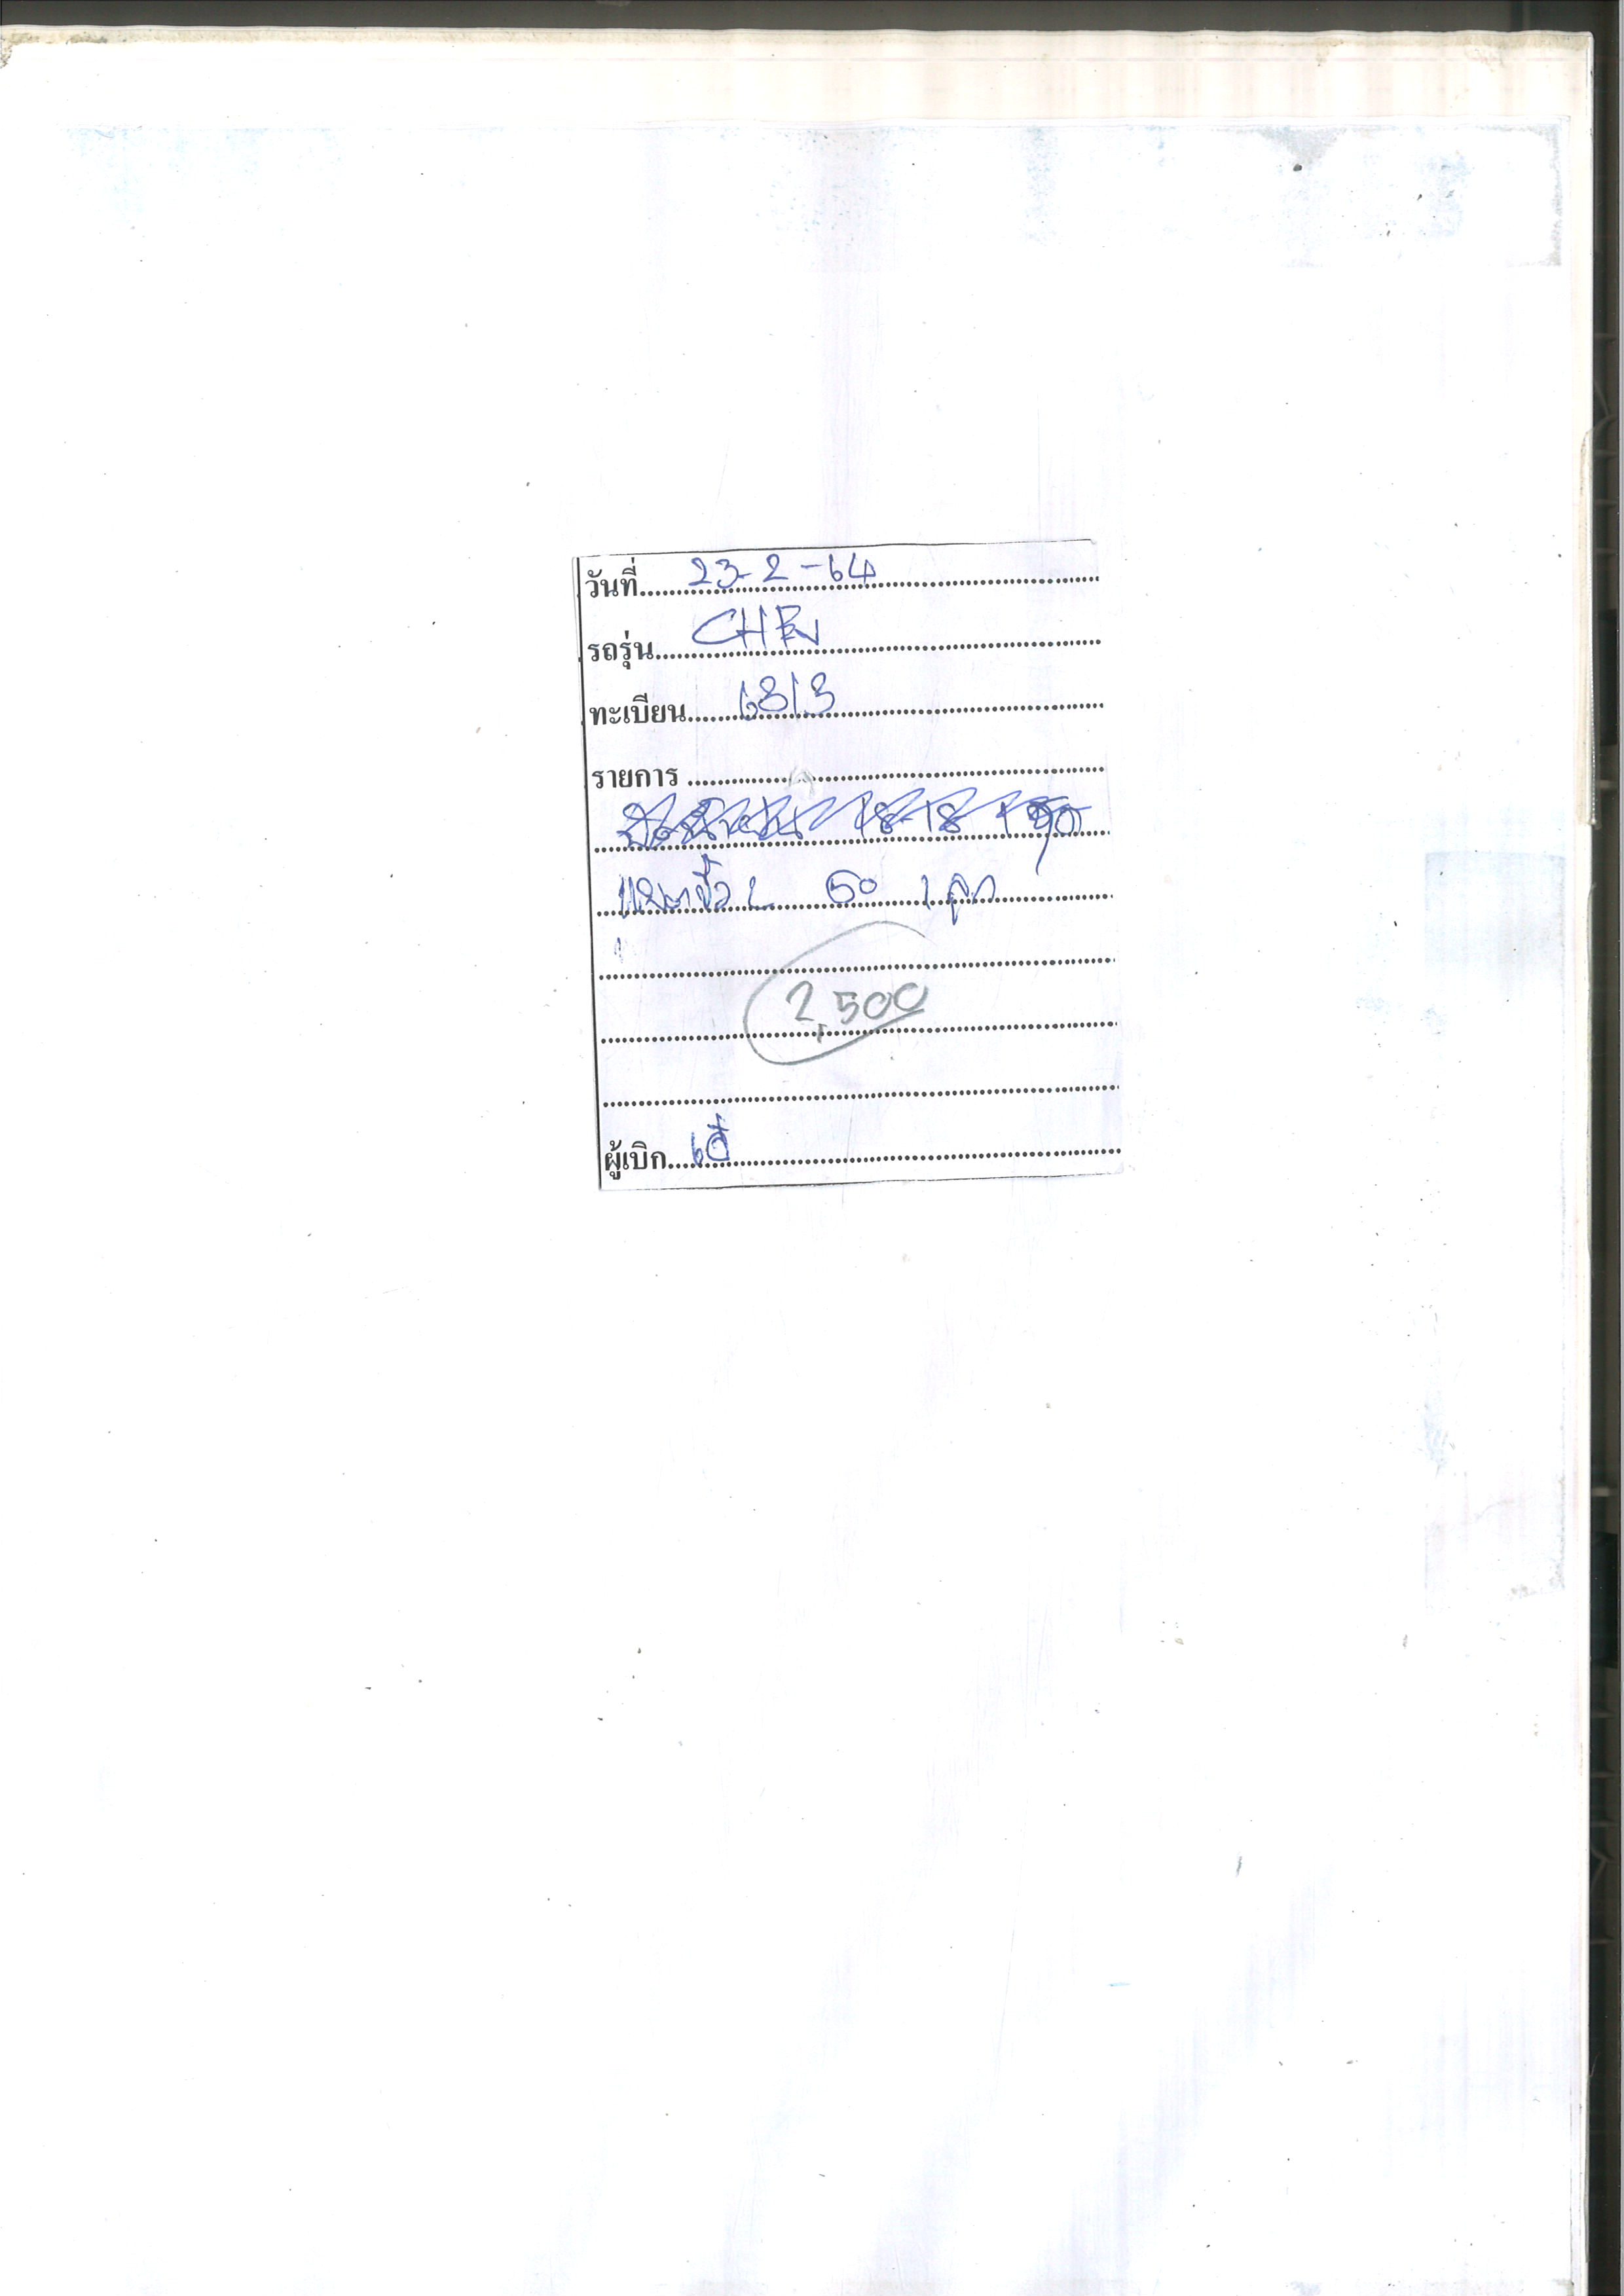 วันที่ 23-2-64
รถรุ่น CHEV
ทะเบียน 6313
รายการ
18-18 1 ชุด
แบตขั้ว L 50 1 ลูก
2,500
ผู้เบิก เอ๋